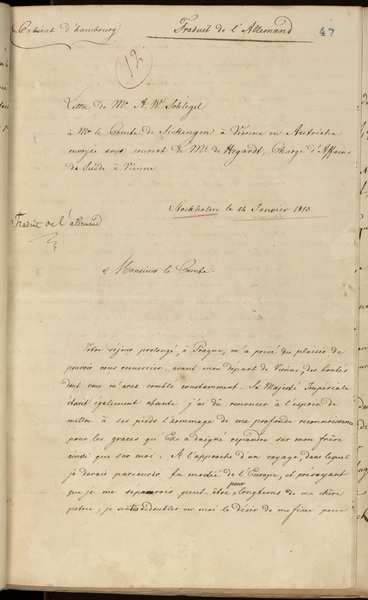 Cabinet d'hambourg
Traduit de l'Allemand
47
12.
Lettre de Mr A. W. Schlegel
à Mr le Comte de Sickingen à Vienne en Autriche
envoyée sous couvert de Mr. de Hegardt, Chargé d'Affaires
de Suède à Vienne
Stockholm le 14 Janvier 1813.
Traduit de l'allemand
Monsieur le Comte
Votre séjour prolongé, à Prague, m'a privé du plaisir de
pouvoir vous remercier, avant mon départ de Vienne, des bontés
dont vous m'avez comblé constamment. Sa Majesté Impériale
étant également absente j'ai dû renoncer à l'espoir de
mettre à ses pieds l'hommage de ma profonde reconnaissance
pour les graces que Elle a daigné repandre sur mon frère
ainsi que sur moi. A l'approche d'un voyage, dans lequel
je devais parcourir la moitié de l'Europe, et prévoyant
que je me séparerois peut-être pour longtems de ma chère
patrie, je sentis redoubler en moi le désir de me fixer pour